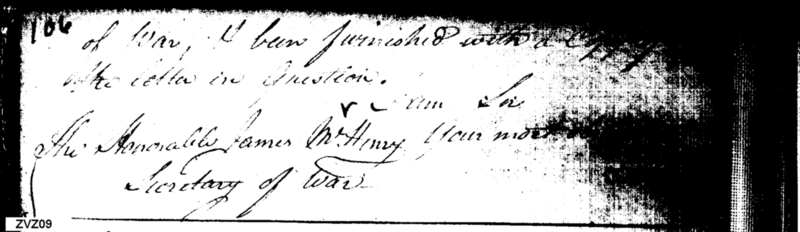 106
of War, & been furnished with a Copy
of the letter in Question.
I am Sir
The Honorable James McHenry Your most
Secretary of War
ZVZ09